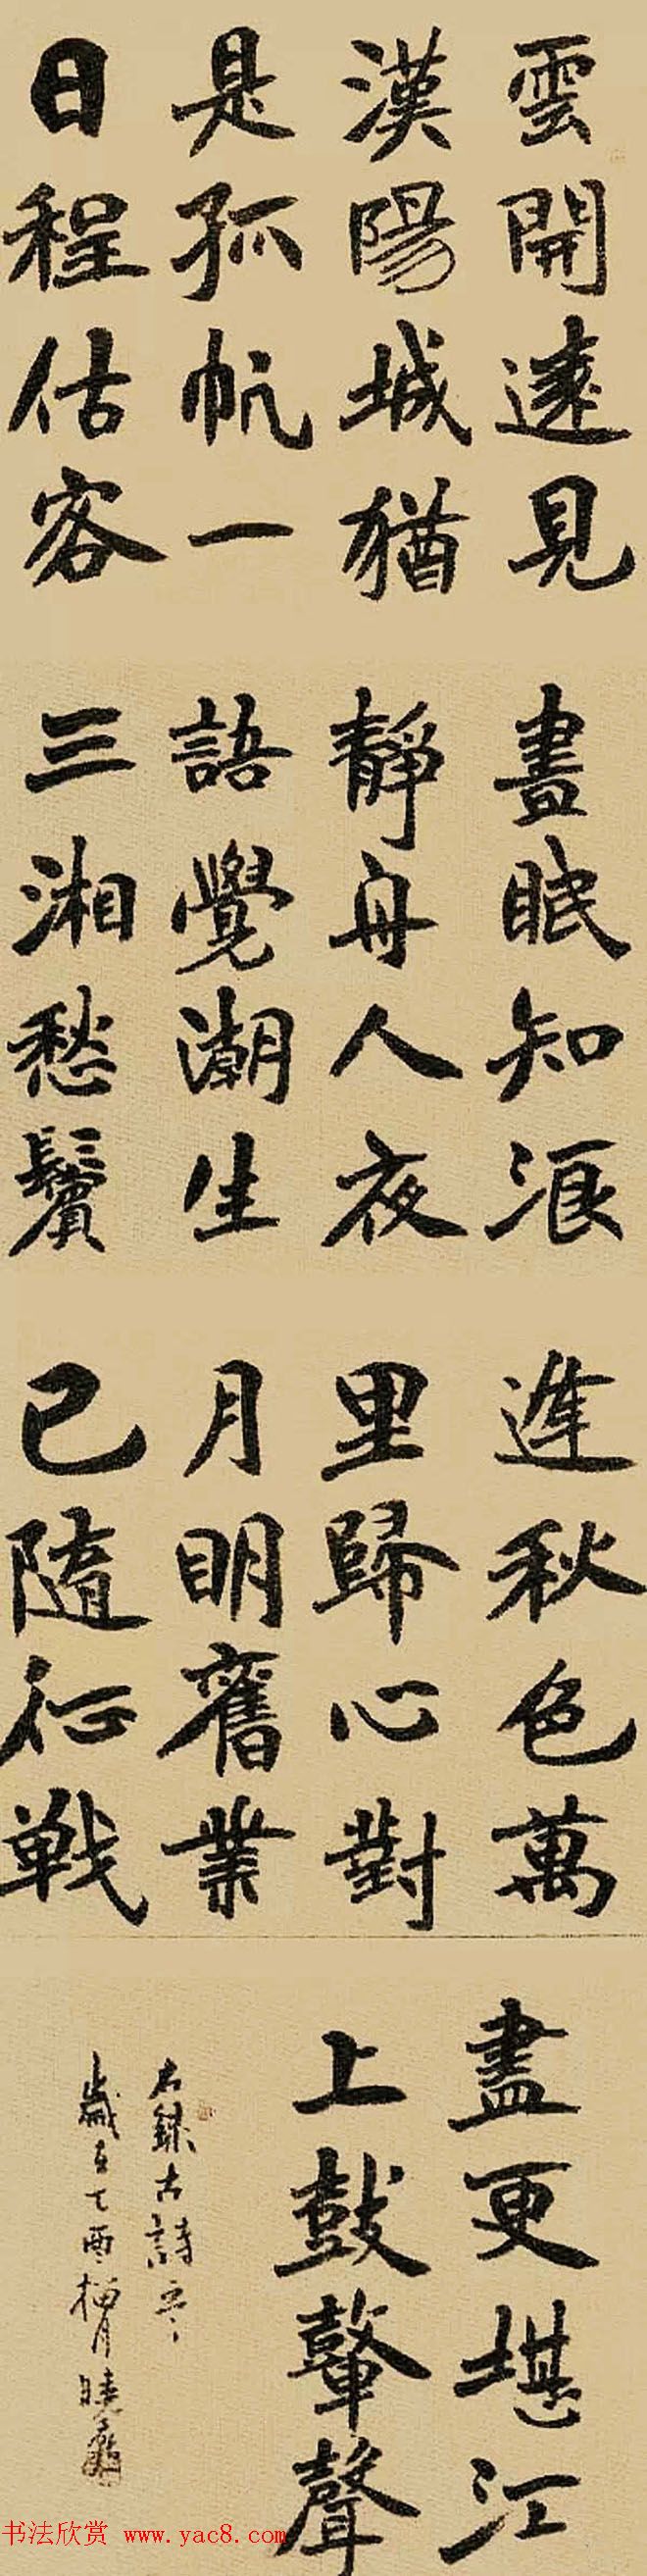 雲開遠見
漢陽城猶
是孤帆一
日程估客
晝眠知浪
靜舟人夜
語覺潮生
三湘愁鬢
逢秋色萬
里歸心對
月明舊業
已隨征戰
盡更堪江
上鼓鼙聲
右錄古詩
歲在乙酉月曉
书法欣赏 www.yac8.com